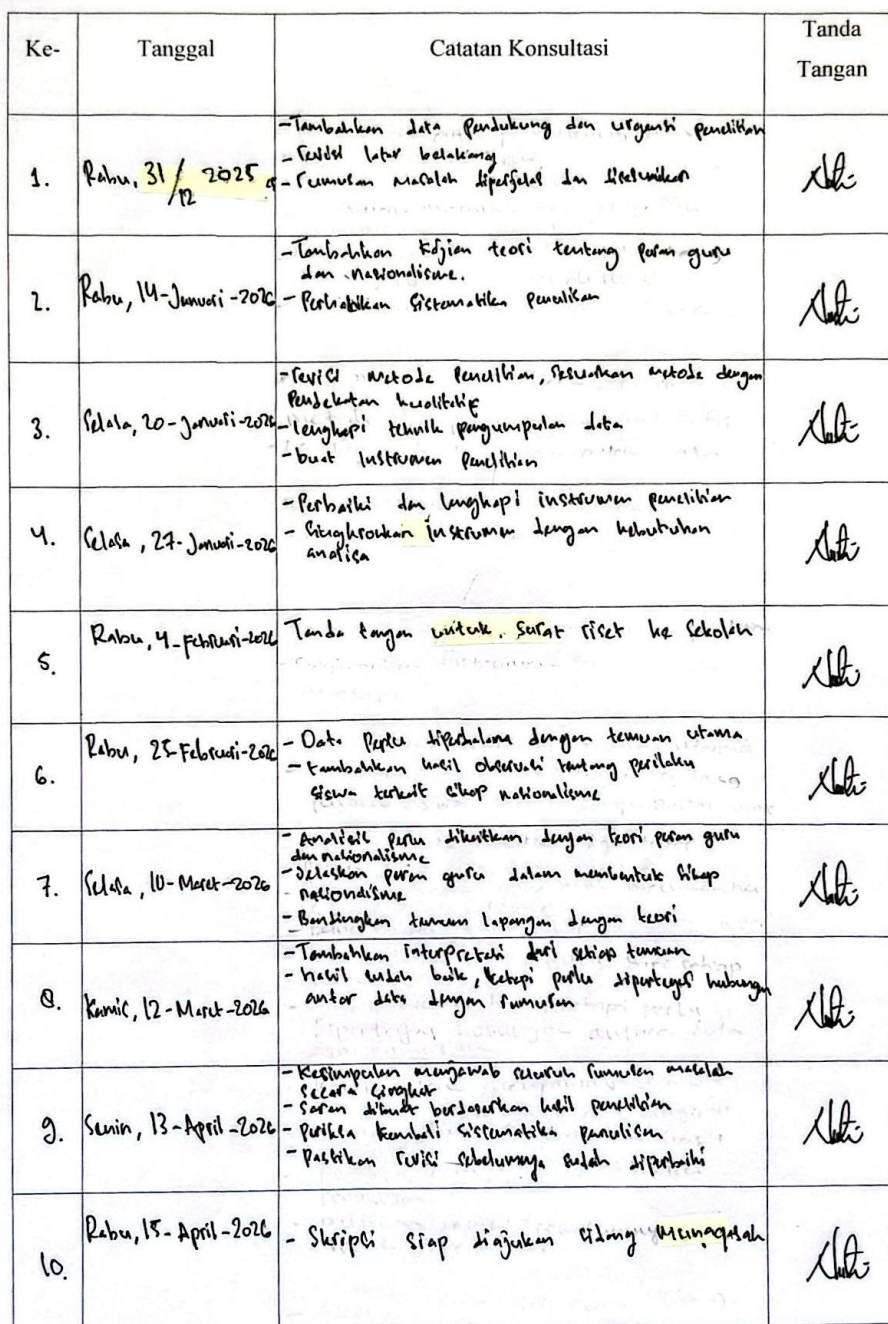 Ke- Tanggal Catatan Konsultasi Tanda Tangan
1. Rabu, 31/12 2025
- Tambahkan data pendukung dan urgensi penelitian
- revisi latar belakang
- rumusan masalah diperjelas dan
2. Rabu, 14-Januari-2026
- Tambahkan kajian teori tentang peran guru
dan nasionalisme.
- Perhatikan sistematika penulisan
3. Selasa, 20-Januari-2026
- revisi metode penelitian, sesuaikan metode dengan
Pendekatan kualitatif
- lengkapi teknik pengumpulan data
- buat Instrumen Penelitian
4. Selasa, 27-Januari-2026
- Perbaiki dan lengkapi instrumen penelitian
- Singkronkan instrumen dengan kebutuhan
analisa
5. Rabu, 4-Februari-2026
Tanda tangan untuk surat riset ke sekolah
6. Rabu, 25-Februari-2026
- Data Perlu diperdalam dengan temuan utama
- tambahkan hasil observasi tentang perilaku
siswa terkait sikap nasionalisme
7. Selasa, 10-Maret-2026
- Analisis perlu dikaitkan dengan teori peran guru
dan nasionalisme
- Jelaskan peran guru dalam membentuk sikap
nasionalisme
- Bandingkan temuan lapangan dengan teori
8. Kamis, 12-Maret-2026
- Tambahkan interpretasi dari setiap temuan
- hasil sudah baik, tetapi perlu dipertegas hubungan
antar data dengan rumusan
9. Senin, 13-April-2026
- Kesimpulan menjawab seluruh rumusan masalah
secara singkat
- Saran dibuat berdasarkan hasil penelitian
- periksa kembali sistematika penulisan
- pastikan revisi sebelumnya sudah diperbaiki
10. Rabu, 15-April-2026
- Skripsi siap diajukan sidang munaqasah